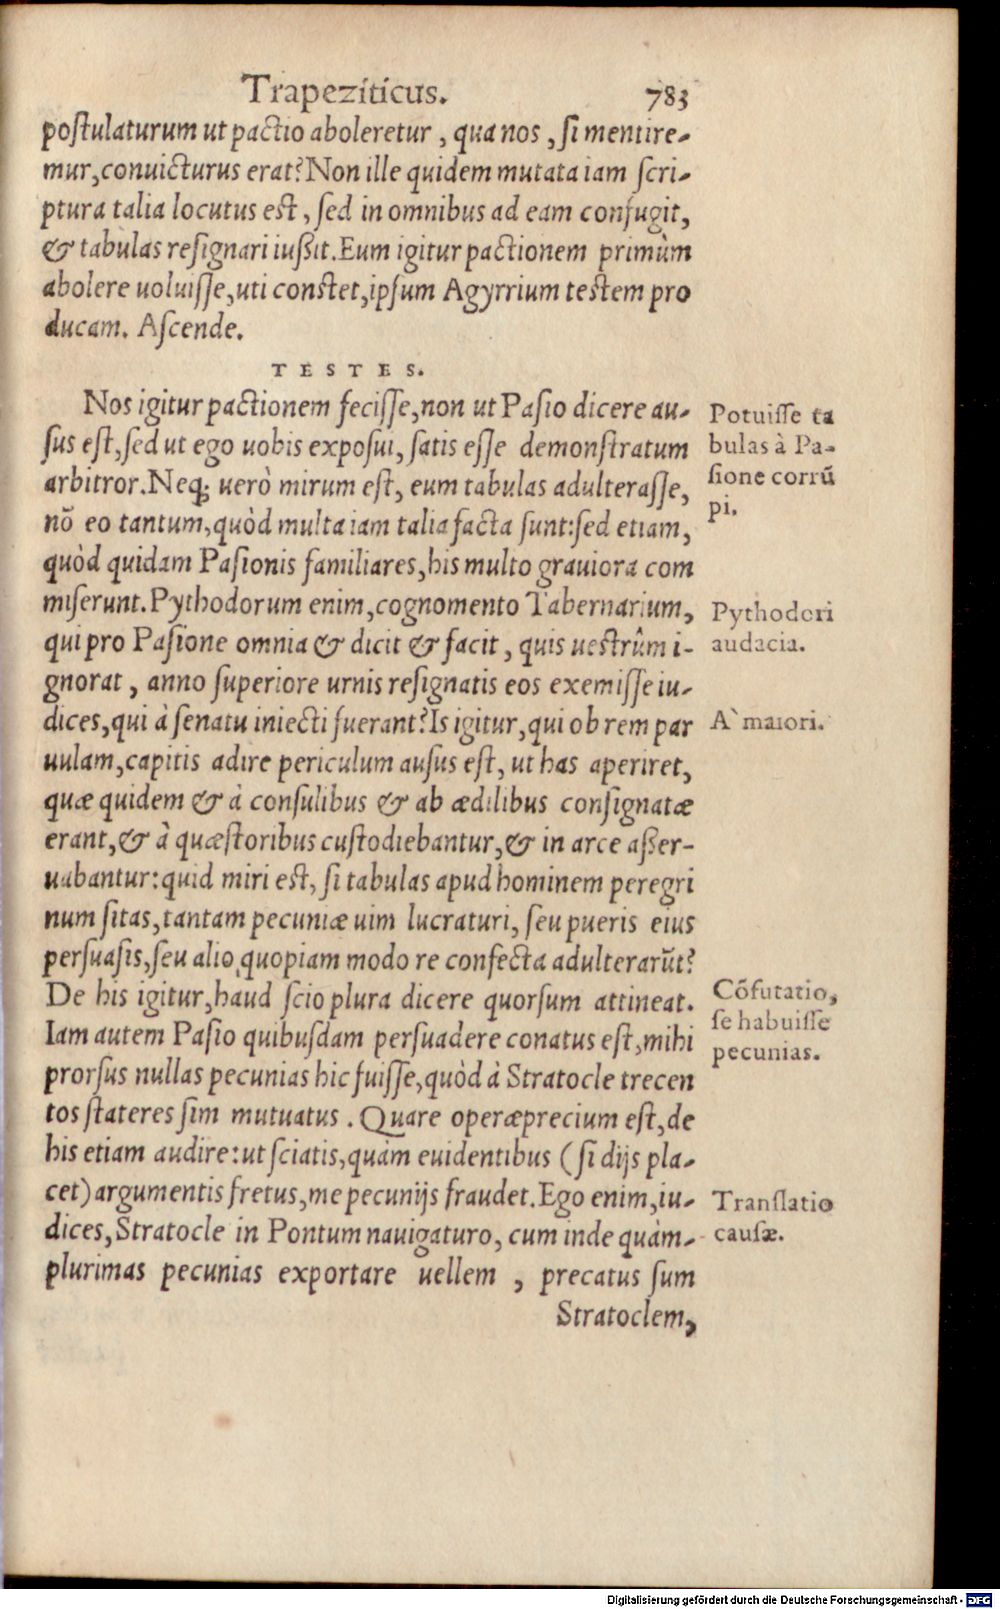 Trapezíticus. 783
poſtulaturum ut pactio aboleretur, qua nos, ſi mentire-
mur, conuicturus erat? Non ille quidem mutata iam ſcri-
ptura talia locutus eſt, ſed in omnibus ad eam confugit,
& tabulas reſignari iußit. Eum igitur pactionem primùm
abolere uoluiſſe, uti conſtet, ipſum Agyrrium teſtem pro
ducam. Aſcende.
TESTES.
Nos igitur pactionem feciſſe, non ut Paſio dicere au-
ſus eſt, ſed ut ego uobis expoſui, ſatis eſſe demonſtratum
arbitror. Neq; uerò mirum eſt, eum tabulas adulteraſſe,
nō eo tantum, quòd multa iam talia facta ſunt: ſed etiam,
quòd quidam Paſionis familiares, his multo grauiora com
miſerunt. Pythodorum enim, cognomento Tabernarium,
qui pro Paſione omnia & dicit & facit, quis ueſtrûm i-
gnorat, anno ſuperiore urnis reſignatis eos exemiſſe iu-
dices, qui à ſenatu iniecti fuerant? Is igitur, qui ob rem par
uulam, capitis adire periculum auſus eſt, ut has aperiret,
quæ quidem & à conſulibus & ab ædilibus conſignatæ
erant, & à quæſtoribus cuſtodiebantur, & in arce aßer-
uabantur: quid miri eſt, ſi tabulas apud hominem peregri
num ſitas, tantam pecuniæ uim lucraturi, ſeu pueris eius
perſuaſis, ſeu alio quopiam modo re confecta adulterarūt?
De his igitur, haud ſcio plura dicere quorſum attineat.
Iam autem Paſio quibuſdam perſuadere conatus eſt, mihi
prorſus nullas pecunias hic fuiſſe, quòd à Stratocle trecen
tos ſtateres ſim mutuatus. Quare operæprecium eſt, de
his etiam audire: ut ſciatis, quàm euidentibus (ſi dijs pla-
cet) argumentis fretus, me pecunijs fraudet. Ego enim, iu-
dices, Stratocle in Pontum nauigaturo, cum inde quàm-
plurimas pecunias exportare uellem, precatus ſum
Stratoclem,
Potuiſſe ta
bulas à Pa-
ſione corrū
pi.
Pythodori
audacia.
A` maiori.
Cōfutatio,
ſe habuiſſe
pecunias.
Tranſlatio
cauſæ.
Digitalisierung gefördert durch die Deutsche Forschungsgemeinschaft - DFG